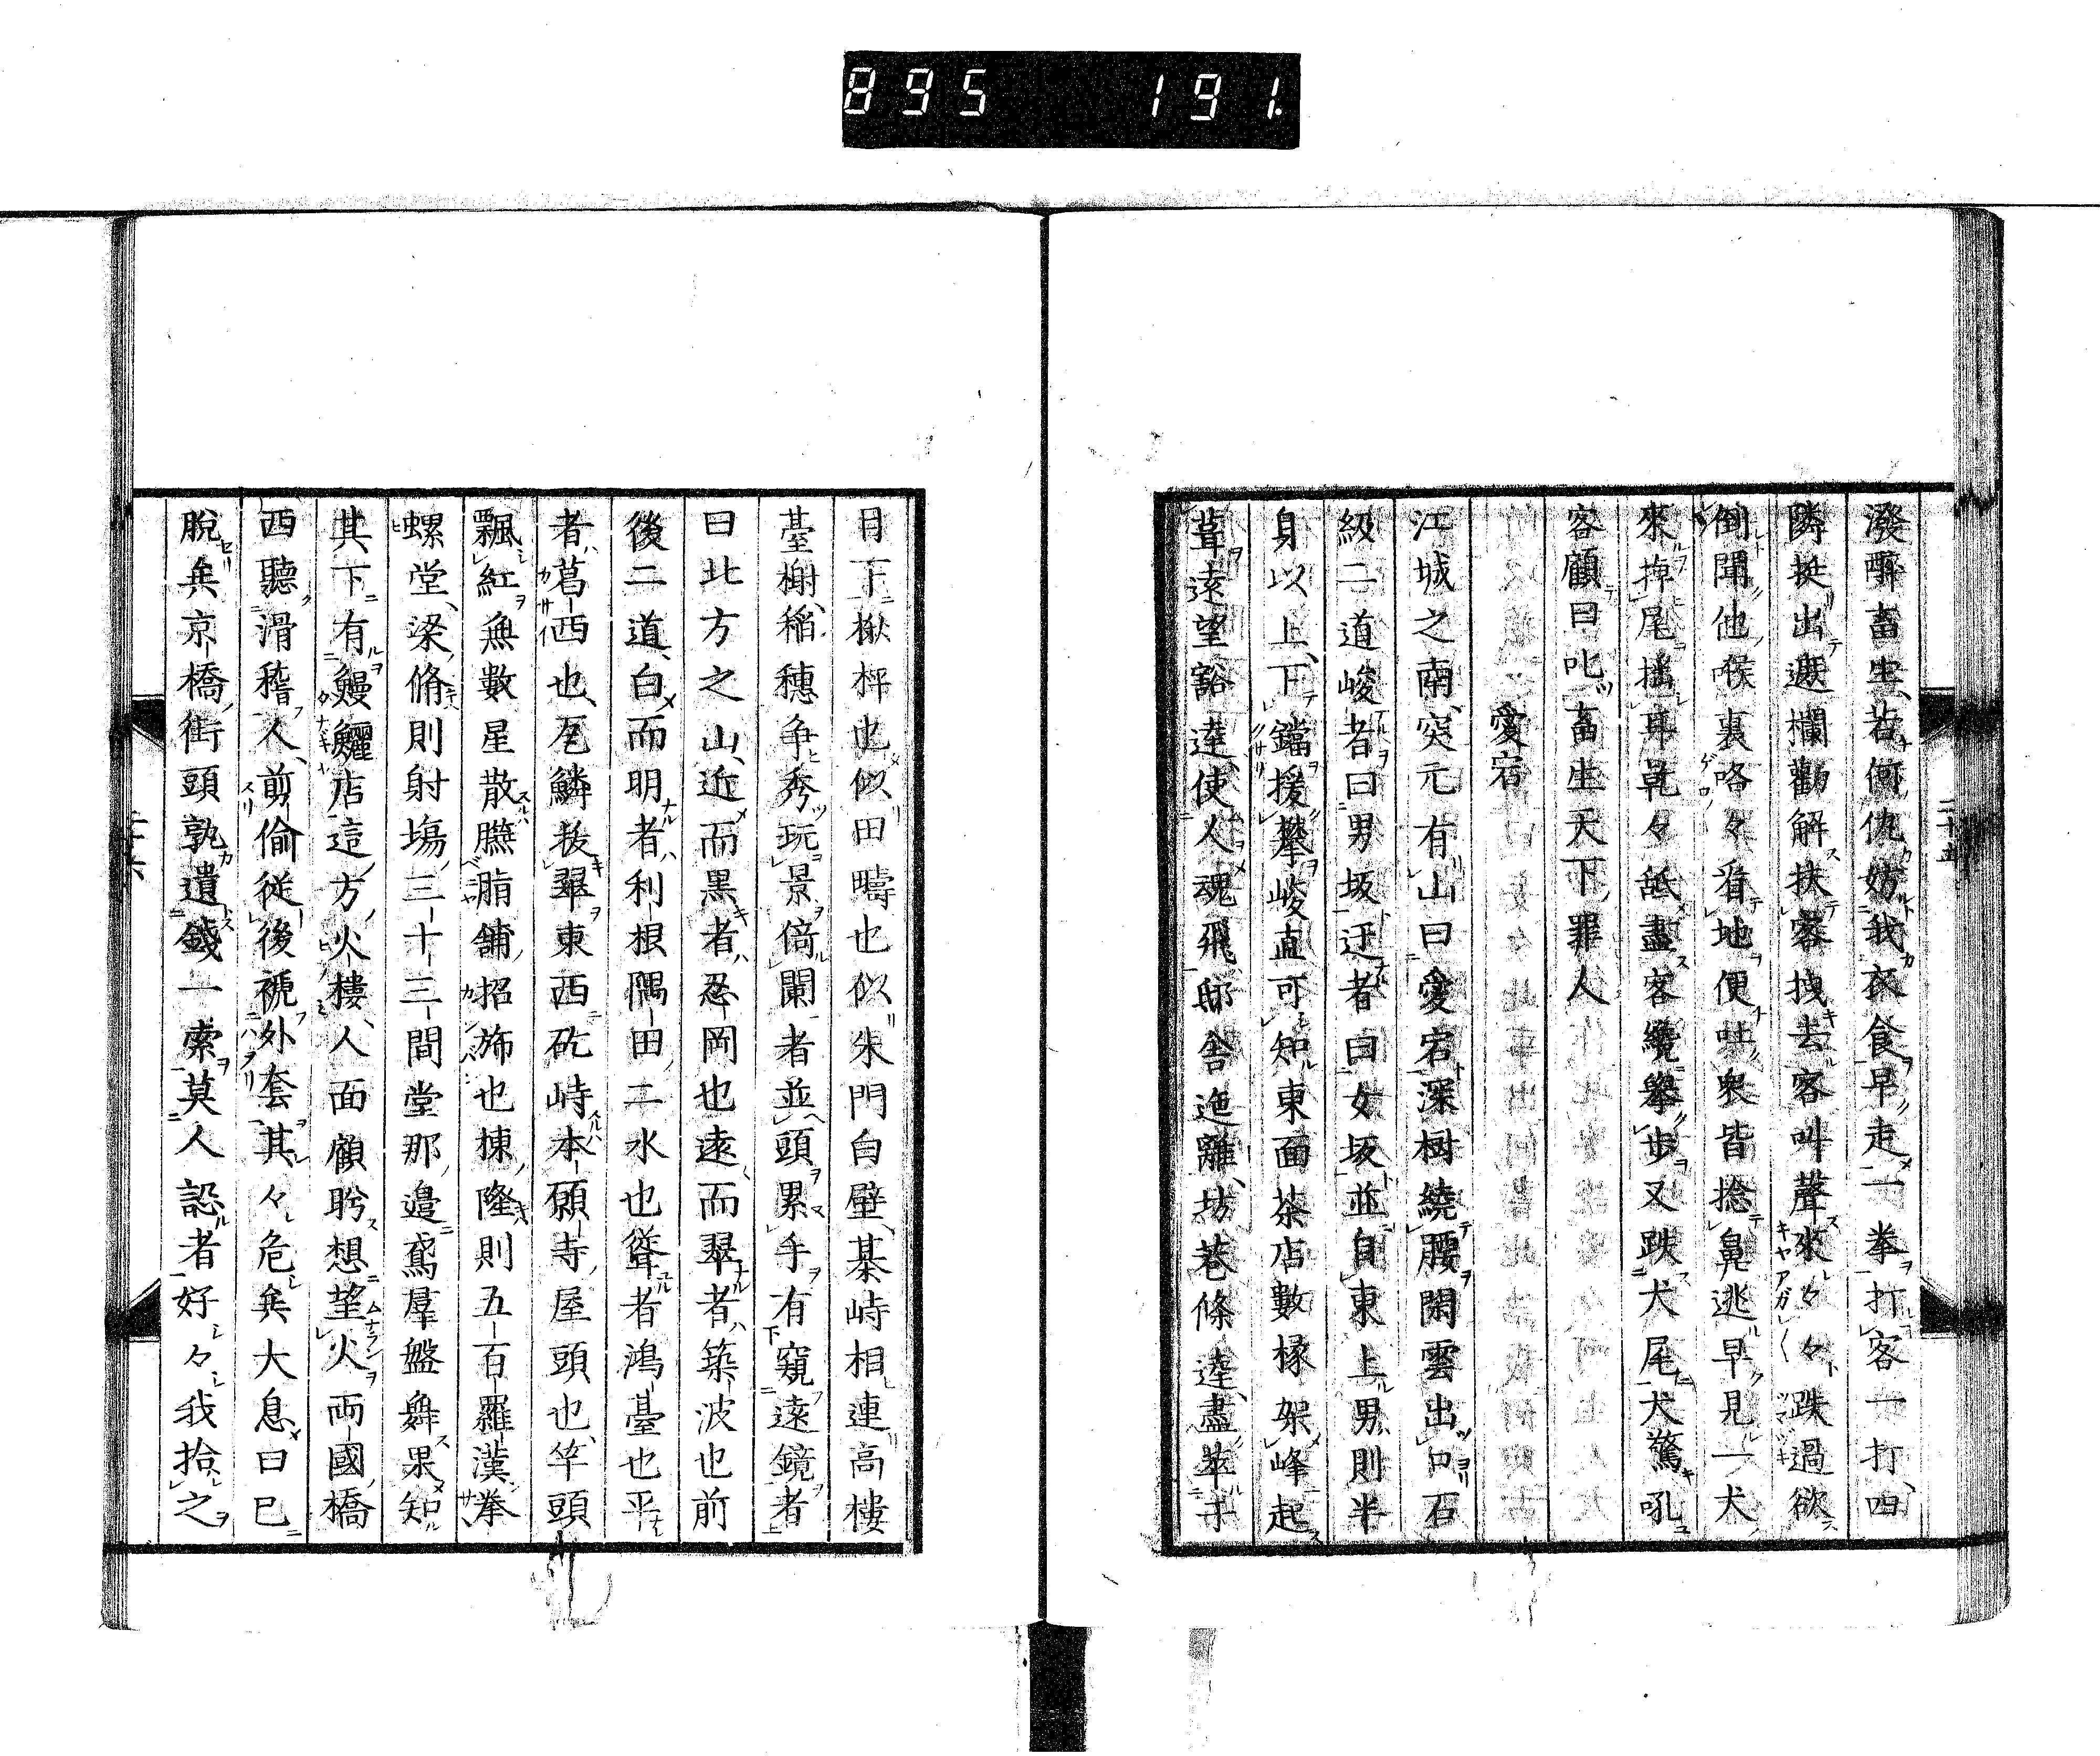 895 191.
二十五
潑醉畜生、若何仇妨我衣食早走一拳打客一打、四
隣挺出遮欄勸解扶客拽去客叫聲來々々跌過欲
倒聞他喉裏咯々看地便吐衆皆捻鼻逃早見一犬
來掉尾搖耳乾々舐盡客纔擧歩又跌犬尾犬驚吼
客顧曰叱畜生天下罪人
愛宕
江城之南、突兀有山曰愛宕深樹繞腰閑雲出口石
級二道峻者曰男坂迂者曰女坂並自東上男則半
身以上、下鐺援攀峻直可知東面茶店數椽架峰起
葺遠望豁達、使人魂飛邸舎迤邐、坊巷條達、盡萃于
目下楸枰也似田疇也似朱門白壁、棊峙相連高樓
臺榭、稲穂争秀玩景倚闌者並頭累手有窺遠鏡者
曰北方之山、近而黒者、忍岡也遠而翠者、築波也前
後二道、白而明者、利根隅田二水也聳者鴻臺也平
者、葛西也、瓦鱗抜翠東西矻峙本願寺屋頭也、竿頭
飄紅魚數星散臙脂舗招旆也棟隆則五百羅漢拳
螺堂、梁脩則射塲三十三間堂那邉鳶羣盤舞果知
其下有鰻鱺店這方火樓、人面顧盻想望火両國橋
西聽滑稽人、剪偷従後褫外套其々危矣大息曰已
脱矣京橋街頭孰遺錢一索莫人認者好々我拾之
二十六